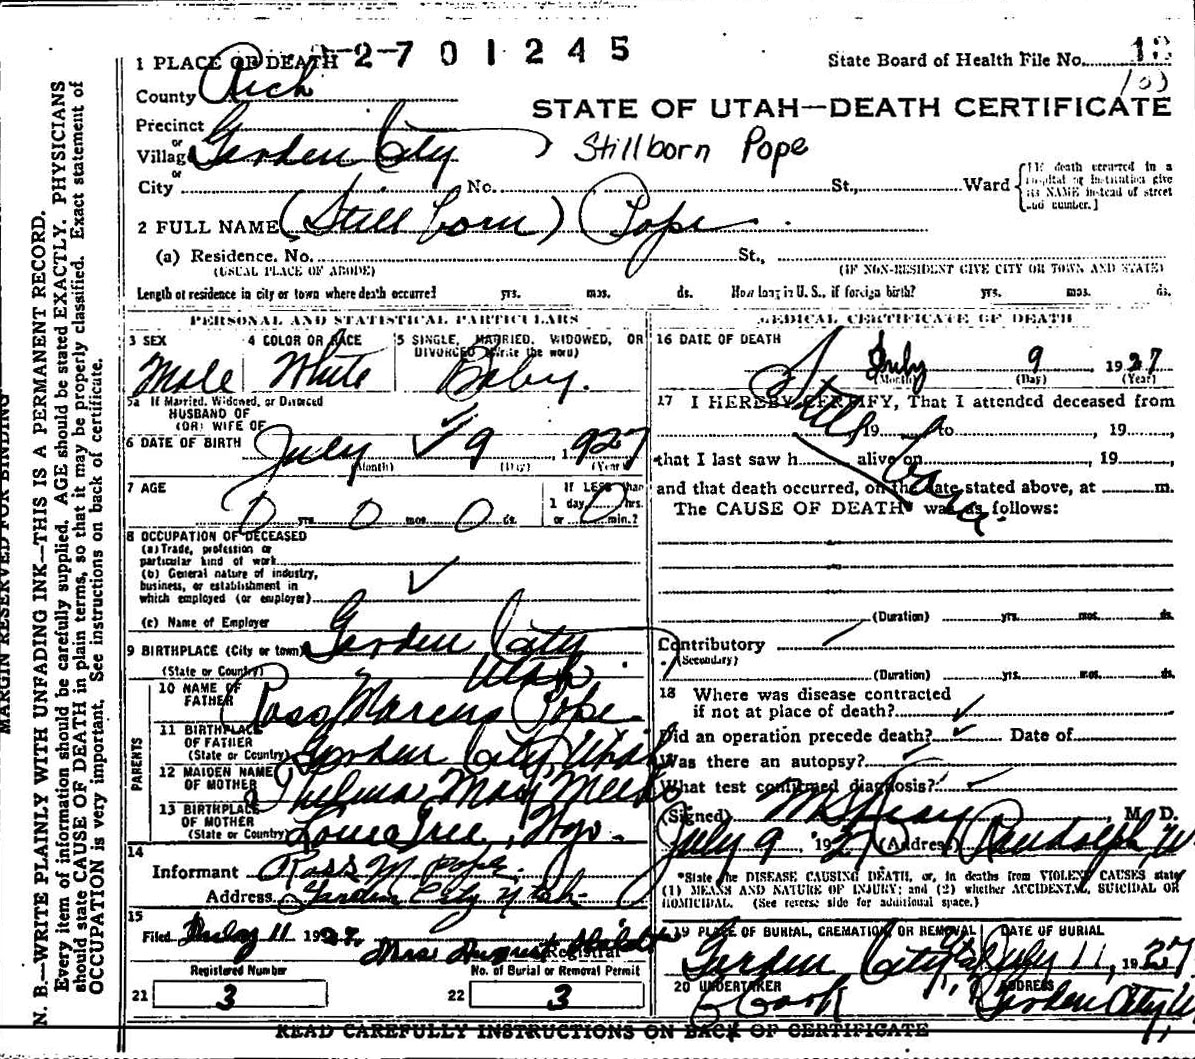 2701245
1 PLACE OF DEATH
State Board of Health File No.
County Rich
STATE OF UTAH—DEATH CERTIFICATE
Precinct
or
Village Gorden City
Stillborn Pope
or
City No. St., Ward {[If death occurred in a hospital or institution give its NAME instead of street and number.]
2 FULL NAME (Still born) Pope
(a) Residence. No. St.,
(USUAL PLACE OF ABODE) (IF NON-RESIDENT GIVE CITY OR TOWN AND STATE)
Length of residence in city or town where death occurred? yrs. mos. ds. How long in U. S., if foreign birth? yrs. mos. ds.
PERSONAL AND STATISTICAL PARTICULARS
3 SEX 4 COLOR OR RACE 5 SINGLE, MARRIED, WIDOWED, OR
DIVORCED (Write the word)
Male White Baby.
5a If Married, Widowed, or Divorced
HUSBAND OF
(OR) WIFE OF
6 DATE OF BIRTH July 9 1927
(Month) (Day) (Year)
7 AGE If LESS than
1 day hrs.
0 yrs. 0 mos. 0 ds. or 0 min.?
8 OCCUPATION OF DECEASED
(a) Trade, profession or
particular kind of work
(b) General nature of industry,
business, or establishment in
which employed (or employer)
(c) Name of Employer
9 BIRTHPLACE (City or town) Gorden City
(State or Country) Utah.
PARENTS
10 NAME OF
FATHER Ross Marcus Pope.
11 BIRTHPLACE
OF FATHER
(State or Country) Gorden City Utah
12 MAIDEN NAME
OF MOTHER Thelma May Meeks
13 BIRTHPLACE
OF MOTHER
(State or Country) Lone Tree, Wyo.
14
Informant Ross M. Pope.
Address Garden City Utah
15
Filed July 11 1927. Mrs August
Registrar
Registered Number No. of Burial or Removal Permit
21 3 22 3
MEDICAL CERTIFICATE OF DEATH
16 DATE OF DEATH
July 9 1927
(Month) (Day) (Year)
17 I HEREBY CERTIFY, That I attended deceased from
Still 19 to , 19 ,
that I last saw h alive on , 19 ,
born
and that death occurred, on the date stated above, at m.
The CAUSE OF DEATH was as follows:
(Duration) yrs. mos. ds.
Contributory
(Secondary)
(Duration) yrs. mos. ds.
18 Where was disease contracted
if not at place of death?
Did an operation precede death? Date of
Was there an autopsy?
What test confirmed diagnosis?
(Signed) , M. D.
July 9, 1927 (Address) Randolph, U
*State the DISEASE CAUSING DEATH, or, in deaths from VIOLENT CAUSES state
(1) MEANS AND NATURE OF INJURY; and (2) whether ACCIDENTAL, SUICIDAL OR
HOMICIDAL. (See reverse side for additional space.)
19 PLACE OF BURIAL, CREMATION OR REMOVAL DATE OF BURIAL
Gorden City July 11, 1927
20 UNDERTAKER ADDRESS
Cook Gorden City U
READ CAREFULLY INSTRUCTIONS ON BACK OF CERTIFICATE
MARGIN RESERVED FOR BINDING
N. B.—WRITE PLAINLY WITH UNFADING INK—THIS IS A PERMANENT RECORD.
Every item of information should be carefully supplied. AGE should be stated EXACTLY. PHYSICIANS
should state CAUSE OF DEATH in plain terms, so that it may be properly classified. Exact statement of
OCCUPATION is very important. See instructions on back of certificate.